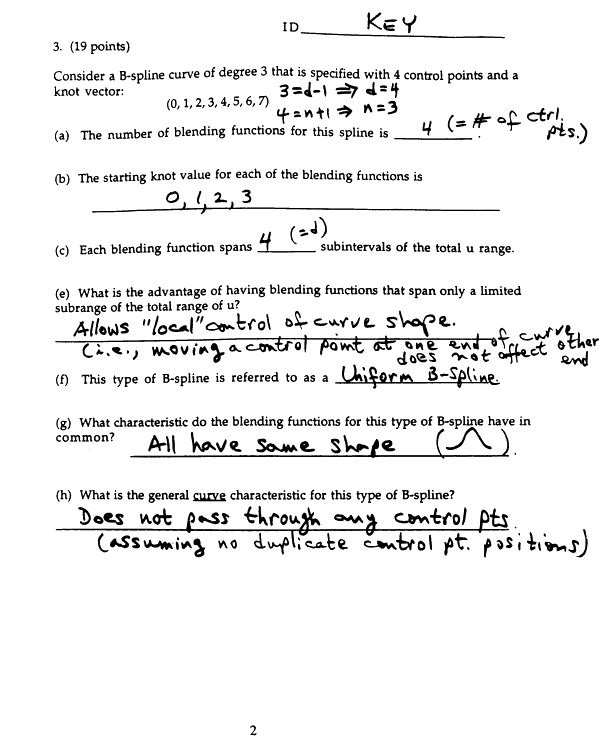 ID KEY
3. (19 points)
Consider a B-spline curve of degree 3 that is specified with 4 control points and a
knot vector: 3=d-1 ⇒ d=4
(0, 1, 2, 3, 4, 5, 6, 7) 4=n+1 ⇒ n=3
(a) The number of blending functions for this spline is 4 (= # of ctrl. pts.) .
(b) The starting knot value for each of the blending functions is
0, 1, 2, 3
(c) Each blending function spans 4 (=d) subintervals of the total u range.
(e) What is the advantage of having blending functions that span only a limited
subrange of the total range of u?
Allows "local" control of curve shape.
(i.e., moving a control point at one end of curve
does not affect other
end
(f) This type of B-spline is referred to as a Uniform B-Spline.
(g) What characteristic do the blending functions for this type of B-spline have in
common? All have same shape ( ).
(h) What is the general curve characteristic for this type of B-spline?
Does not pass through any control pts.
(assuming no duplicate control pt. positions)
2